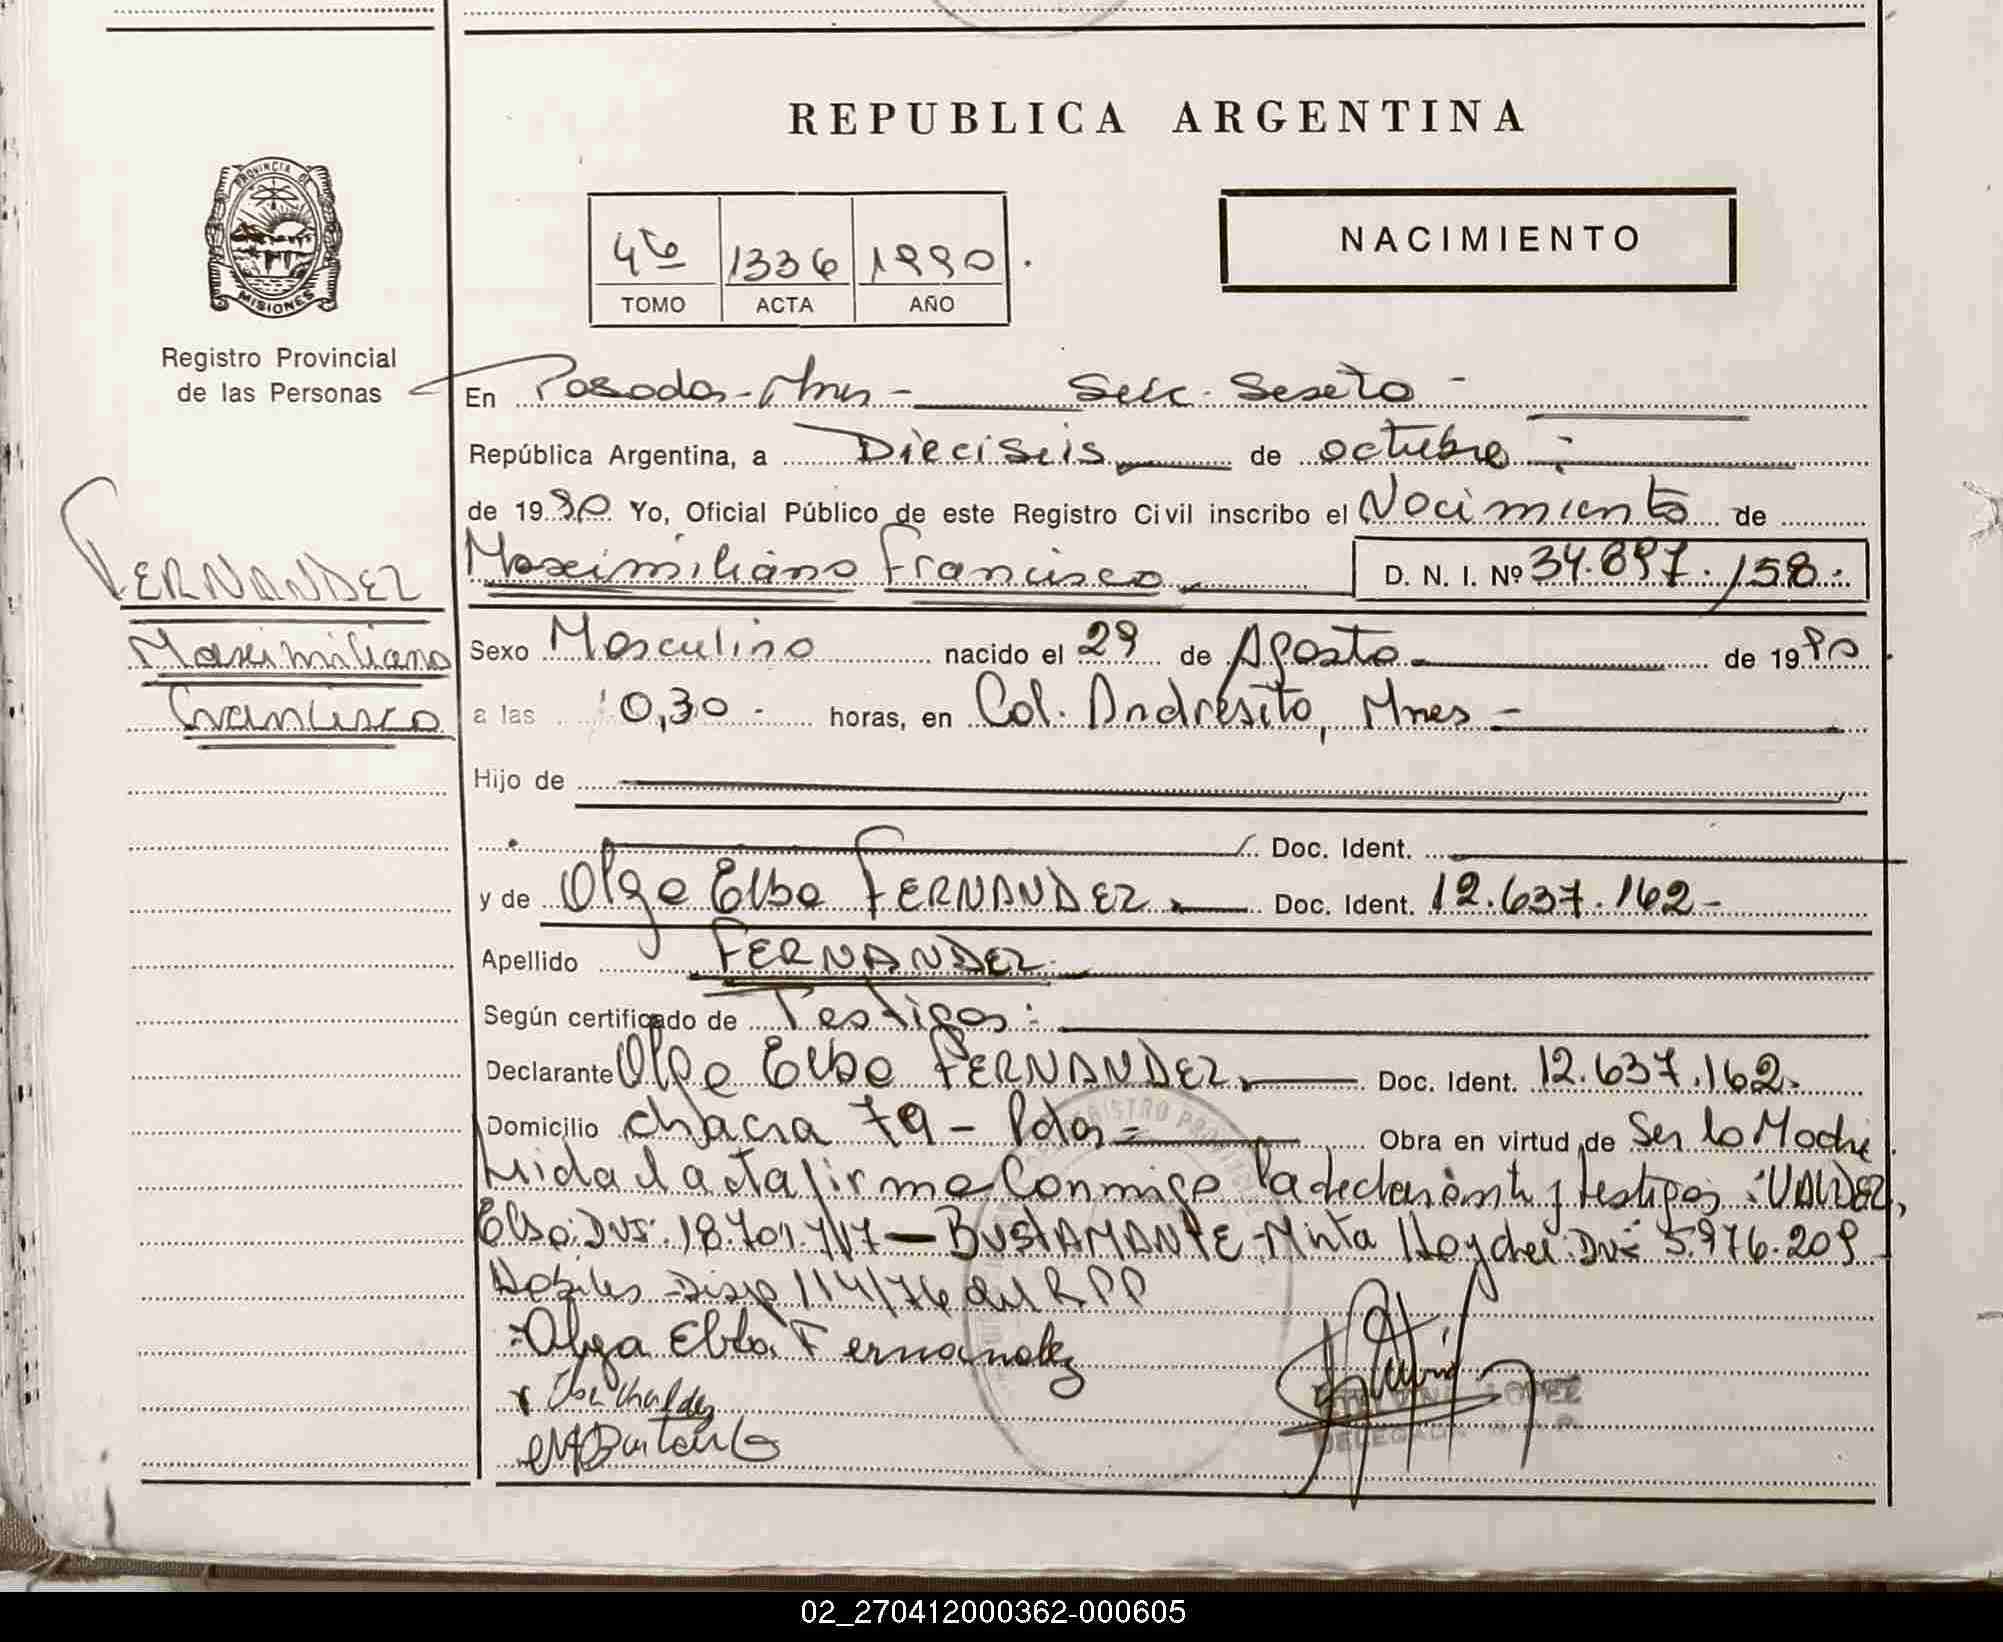 REPUBLICA ARGENTINA
PROVINCIA DE
MISIONES
Registro Provincial
de las Personas
4to 1336 1990.
TOMO ACTA AÑO
NACIMIENTO
En Posadas-Mnes- Secc. Sexta-
República Argentina, a Dieciseis de octubre
de 1990 Yo, Oficial Público de este Registro Civil inscribo el Nacimiento de
Maximiliano Francisco D. N. I. Nº 34.897.158.
FERNANDEZ
Maximiliano
Francisco
Sexo Masculino nacido el 29 de Agosto de 1980
a las 0,30 - horas, en Col. Andresito, Mnes-
Hijo de
Doc. Ident.
y de Olga Elba FERNANDEZ Doc. Ident. 12.637.162-
Apellido FERNANDEZ
Según certificado de Testigos:
Declarante Olga Elba FERNANDEZ Doc. Ident. 12.637.162.
Domicilio chacra 79 - Pdas= Obra en virtud de Ser la Madre
Leida el acta firma conmigo la declarante y testigos: VALDEZ,
Elsa: DNI: 18.701.717 — BUSTAMANTE - Mirta DNI 5.976.209
Hábiles Disp 114/76 del RPP
Olga Elba Fernandez
LOPEZ
02_270412000362-000605